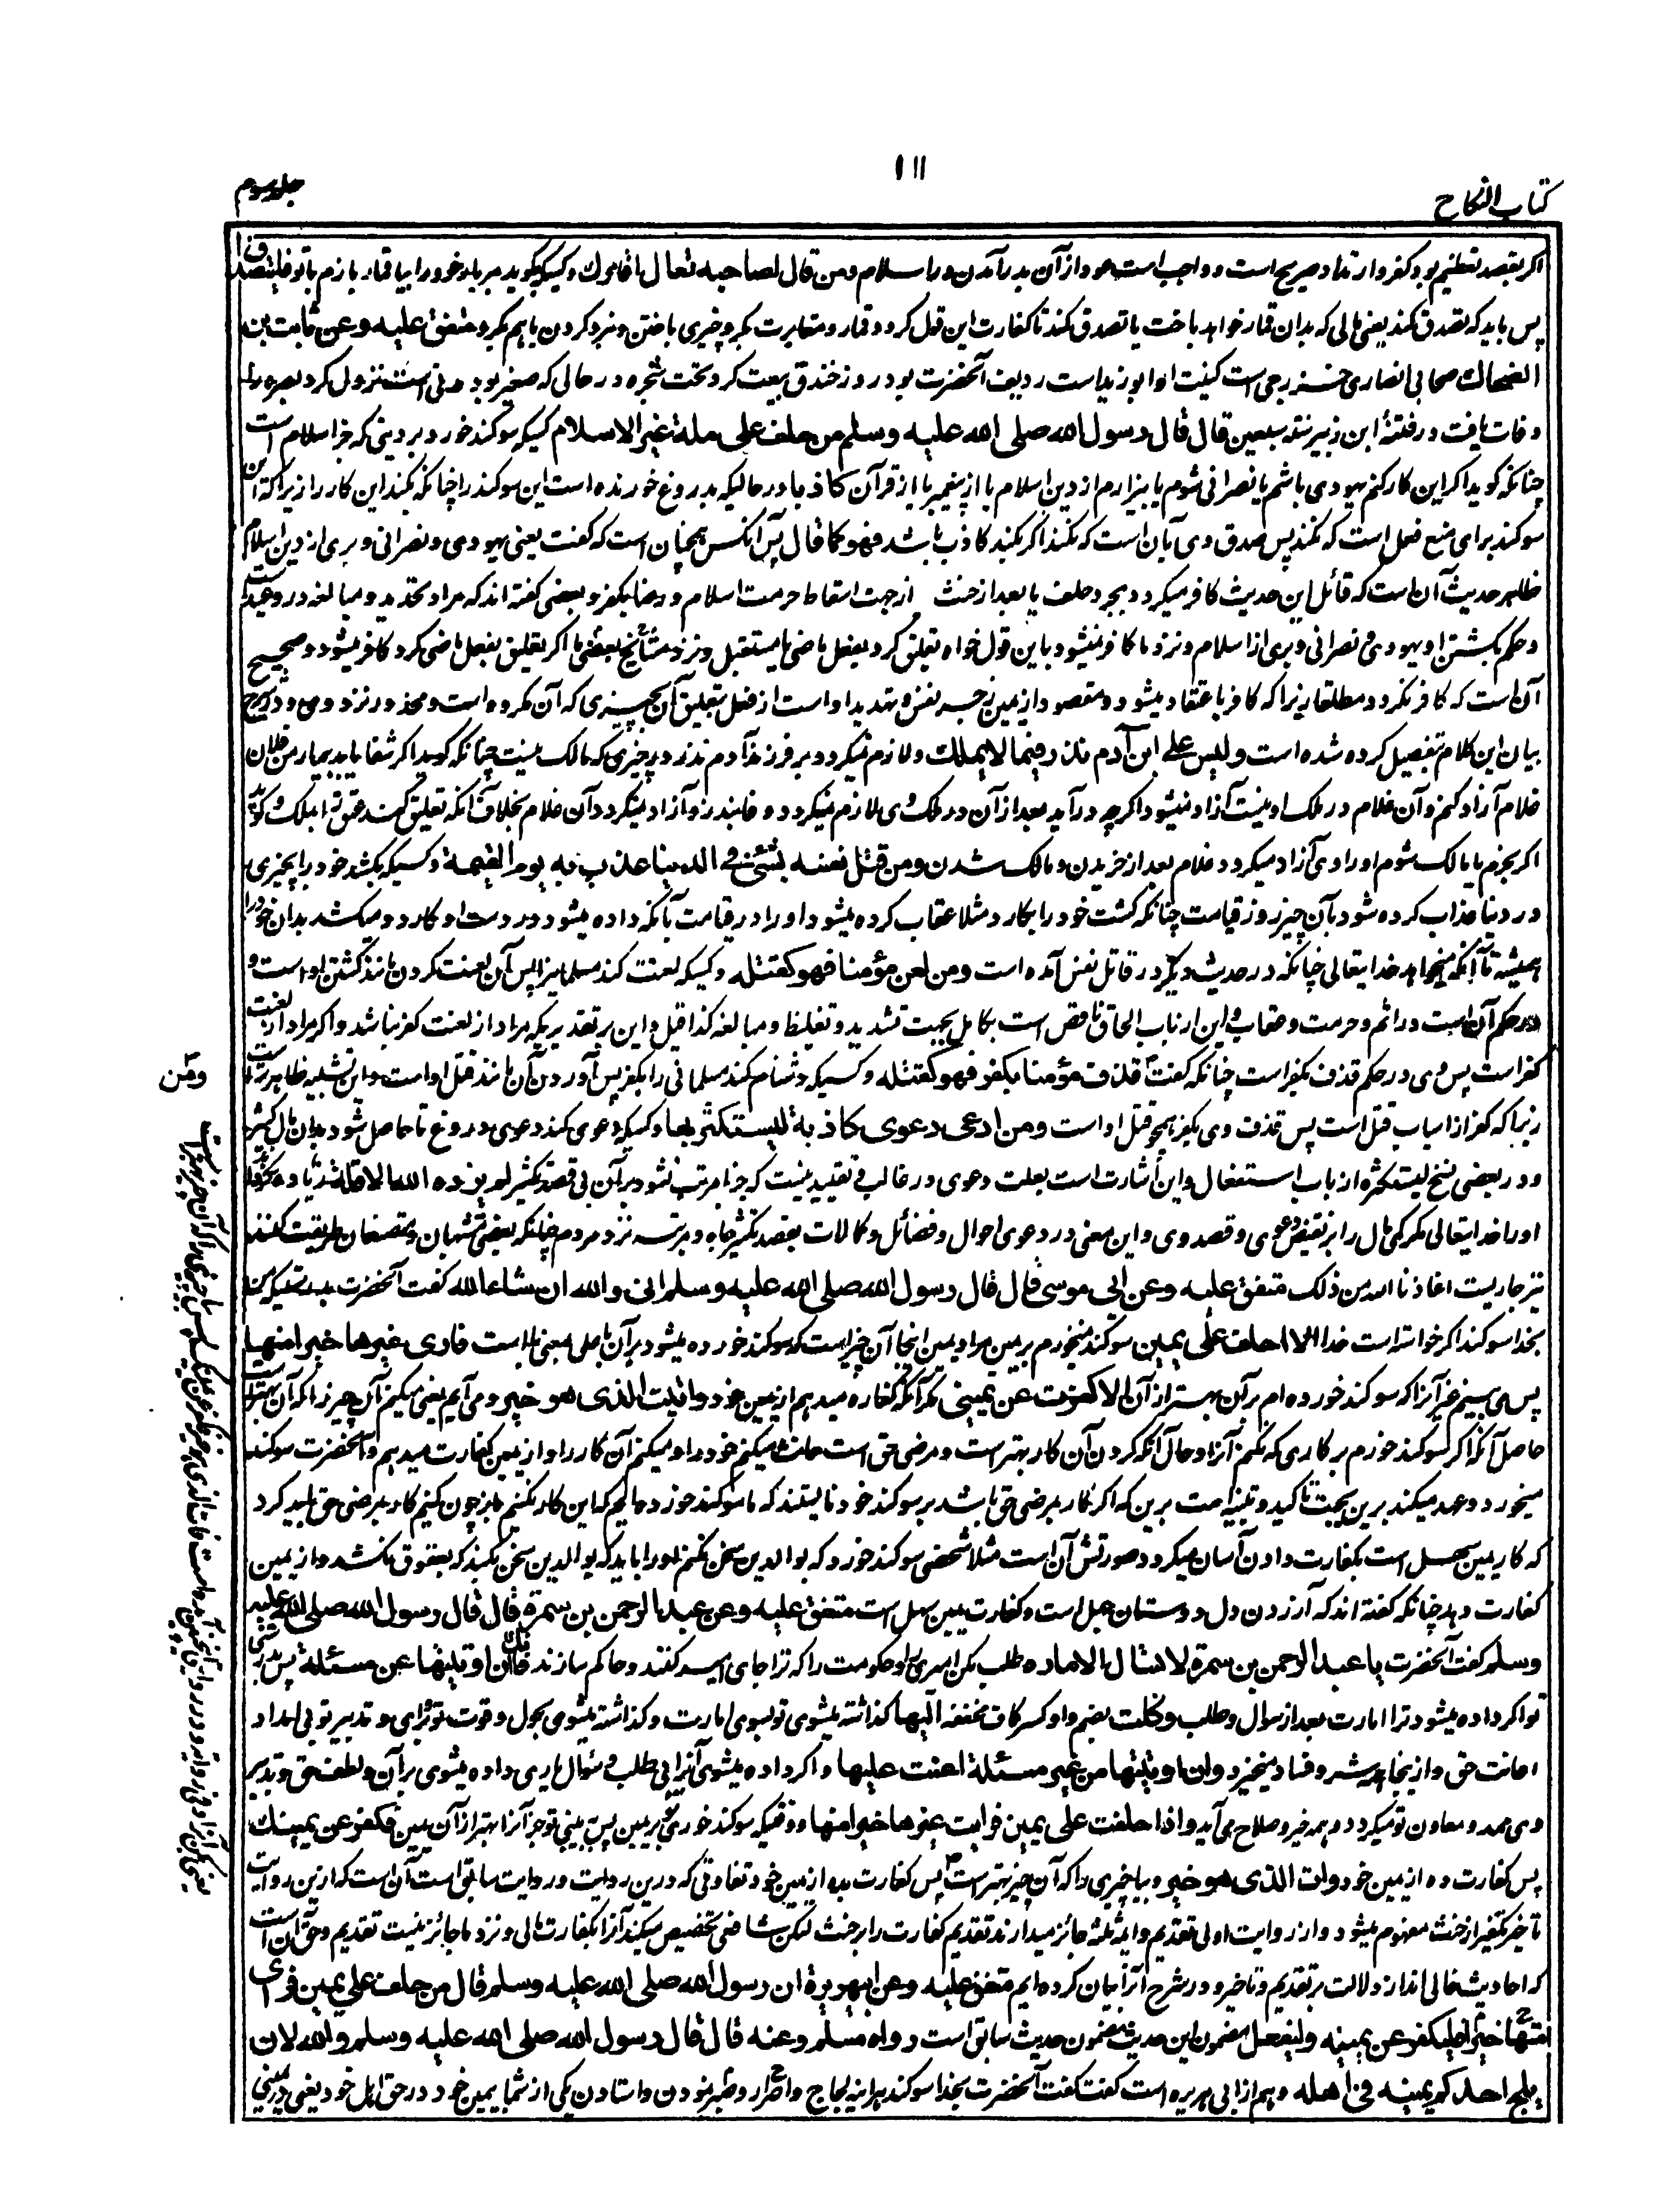 کتاب النکاح
۱۱۱
جلد سوم
اکر بقصد تعظیم بود کفر و ارتداد صریح است و واجب است عود از آن بدر آمدن در اسلام ومن قال لصاحبه تعال اقامرك و کسیکه بکوید مر یار خود را بیا قمار بازم با تو فلیتصدق
پس باید که تصدق کند یعنی مالی که بدان قمار خواهد باخت یا تصدق کند تا کفارت این قول کردد و قمار و مقامرت بکرو چیزی باختن و نبرد کردن باهم بکرو متفق علیه وعن ثابت بن
الضحاك صحابی انصاری خزرجی است کنیت او ابو زید است ردیف آنحضرت بود روز خندق بیعت کرد تحت شجره در حالی که صغیر بود مدنی است نزول کرد بصره را
وفات یافت در فتنهٔ ابن زبیر سنه سبعین قال قال رسول الله صلی الله علیه وسلم من حلف علی ملة غیر الاسلام کسیکه سوکند خورد بر دینی که جز اسلام است
چنانکه کوید اکر این کار کنم یهودی باشم یا نصرانی شوم یا بیزارم از دین اسلام یا از پیغمبر یا از قرآن کاذبا در حالیکه بدروغ خورنده است این سوکند را چنانکه بکند این کار را زیرا که این
سوکند برای منع فعل است که نکند پس صدق وی بآن است که نکند اکر بکند کاذب باشد فهو کما قال پس آنکس همچنان است که کفت یعنی یهودی و نصرانی و بری از دین اسلام
ظاهر حدیث آن است که قائل این حدیث کافر میکردد بمجرد حلف یا بعد از حنث از جهت اسقاط حرمت اسلام و رضا بکفر و بعضی کفته اند که مراد تهدید و مبالغه در وعید است
و حکم بکشتن او یهودی و نصرانی و بری از اسلام و نزد ما کافر نمیشود باین قول خواه تعلیق کرد بفعل ماضی یا مستقبل و نزد مشائخ بعضی ما اکر تعلیق بفعل ماضی کرد کافر میشود و صحیح
آن است که کافر نکردد مطلقا زیرا که کافر باعتقاد میشود و مقصود ازین یمین زجر نفس و تهدید او است از فعل بتعلیق آن بچیزی که آن مکروه است و محذور نزد وی و در شرح
بیان این کلام بتفصیل کرده شده است ولیس علی ابن آدم نذر فیما لا یملك و لازم نمیکردد بر فرزند آدم نذر در چیزی که مالک نیست چنانکه کوید اکر شفا یابد بیمار من فلان
غلام آزاد کنم و آن غلام در ملک او نیست آزاد نمیشود اکرچه در آید بعد از آن در ملک وی لازم نمیکردد وفا بنذر و آزاد نمیکردد آن غلام بخلاف آنکه تعلیق کند عتق را بملک و کوید
اکر بخرم یا مالک شوم او را وی آزاد میکردد غلام بعد از خریدن و مالک شدن ومن قتل نفسه بشیء فی الدنیا عذب به یوم القیمة و کسیکه بکشد خود را بچیزی
در دنیا عذاب کرده شود بآن چیز روز قیامت چنانکه کشت خود را بکارد مثلا عقاب کرده میشود او را در قیامت بآنکه داده میشود در دست او کارد و میکشد بدان خود را
همیشه تا آنکه میخواهد خدایتعالی چنانکه در حدیث دیکر در قاتل نفس آمده است ومن لعن مؤمنا فهو کقتله و کسیکه لعنت کند مسلمانی را پس آن لعنت کردن مانند کشتن او است و
در حکم آن است در اثم و حرمت و عقاب و این از باب الحاق ناقص است بکامل بجهت تشدید و تغلیظ و مبالغه کذا قیل و این بر تقدیریکه مراد از لعنت کفر نباشد و اکر مراد از لعنت
کفر است پس وی در حکم قذف بکفر است چنانکه کفت ومن قذف مؤمنا بکفر فهو کقتله و کسیکه دشنام کند مسلمانی را بکفر پس آوردن آن مانند قتل او است و این تشبیه ظاهر است
زیرا که کفر از اسباب قتل است پس قذف وی بکفر همچو قتل او است ومن ادعی دعوی کاذبة لیستکثر بها و کسیکه دعوی کند دعوی دروغ تا حاصل شود بدان مال کثیر
و در بعضی نسخ لیستکثره از باب استفعال و این اشارت است بعلت دعوی در غالب و تقیید نیست که جزا مرتب نشود بر آن بی قصد تکثیر لم یزده الله الا قلة زیاده نکرداند
او را خدایتعالی مکر کمی مال را بر نقیض دعوی و قصد وی و این معنی در دعوی احوال و فضائل و کمالات بقصد تکثیر جاه و مرتبه نزد مردم چنانکه بعضی متشبهان و متصنعان طریقت کنند
نیز جاریست اعاذنا الله من ذلک متفق علیه وعن ابی موسی قال قال رسول الله صلی الله علیه وسلم انی والله ان شاء الله کفت آنحضرت بدرستیکه من
بخدا سوکند اکر خواسته است خدا لا احلف علی یمین سوکند نمیخورم بر یمین مراد یمین اینجا آن چیز است که سوکند خورده میشود بر آن یا علی بمعنی با است فاری غیرها خیرا منها
پس می بینم غیر آنرا که سوکند خورده ام بر آن بهتر از آن الا کفرت عن یمینی مکر آنکه کفاره میدهم از یمین خود و اتیت الذی هو خیر و می آیم یعنی میکنم آن چیز را که آن بهتر است
حاصل آنکه اکر سوکند خورم بر کاری که نکنم آنرا و حال آنکه کردن آن کار بهتر است و مرضی حق است حانث میکنم خود را و میکنم آن کار را و از یمین کفارت میدهم و آنحضرت سوکند
میخورد و عهد میکند برین بجهت تاکید و تنبیه امت برین که اکر کار مرضی حق باشد بر سوکند خود نایستند که ما سوکند خورده ایم که این کار نکنیم باز چون کنیم کار مرضی حق باید کرد
که کار یمین سهل است بکفارت دادن آسان میکردد و صورتش آن است مثلا شخصی سوکند خورد که بوالدین سخن نکنم او را باید که بوالدین سخن بکند که بعقوق نکشد و از یمین
کفارت دهد چنانکه کفته اند که آزردن دل دوستان جهل است و کفارت یمین سهل است متفق علیه وعن عبد الرحمن بن سمرة قال قال رسول الله صلی الله علیه
وسلم کفت آنحضرت یا عبد الرحمن بن سمرة لا تسال الامارة طلب مکن امیری و حکومت را که ترا جای امیر کنند و حاکم سازند فانك ان اوتیتها عن مسئلة پس بدرستی
تو اکر داده میشود ترا امارت بعد از سوال و طلب وکلت بضم واو و کسر کاف مخففه الیها کذاشته میشوی تو بسوی امارت و کذاشته میشوی بحول و قوت تو و رای و تدبیر تو بی امداد
اعانت حق و ازینجا همه شر و فساد میخیزد وان اوتیتها من غیر مسئلة اعنت علیها و اکر داده میشوی آنرا بی طلب و سوال یاری داده میشوی بر آن و لطف حق و تدبیر
وی ممد و معاون تو میکردد و همه خیر و صلاح می آید واذا حلفت علی یمین فرایت غیرها خیرا منها و وقتیکه سوکند خوری بر یمین پس بینی تو جز آنرا بهتر از آن یمین فکفر عن یمینك
پس کفارت ده از یمین خود وات الذی هو خیر و بیا چیزی را که آن چیز بهتر است پس کفارت بده از یمین خود تفاوتی که درین روایت و روایت سابق است آن است که ازین روایت
تاخیر تکفیر از حنث مفهوم میشود و از روایت اولی تقدیم و ائمه ثلثه جائز میدارند تقدیم کفارت را بر حنث لیکن شافعی تخصیص میکند آنرا بکفارت مالی و نزد ما جائز نیست تقدیم و حق آن است
که احادیث خالی اند از دلالت بر تقدیم و تاخیر و در شرح آنرا بیان کرده ایم متفق علیه وعن ابی هریرة ان رسول الله صلی الله علیه وسلم قال من حلف علی یمین فرای
خیرا منها فلیکفر عن یمینه ولیفعل مضمون این حدیث مضمون حدیث سابق است رواه مسلم وعنه قال قال رسول الله صلی الله علیه وسلم والله لان
یلج احدکم بیمینه فی اهله و هم از ابی هریره است کفت کفت آنحضرت بخدا سوکند هر اینه لجاج و اصرار و ستیز نمودن و استادن یکی از شما بیمین خود در حق اهل خود یعنی در یمینی